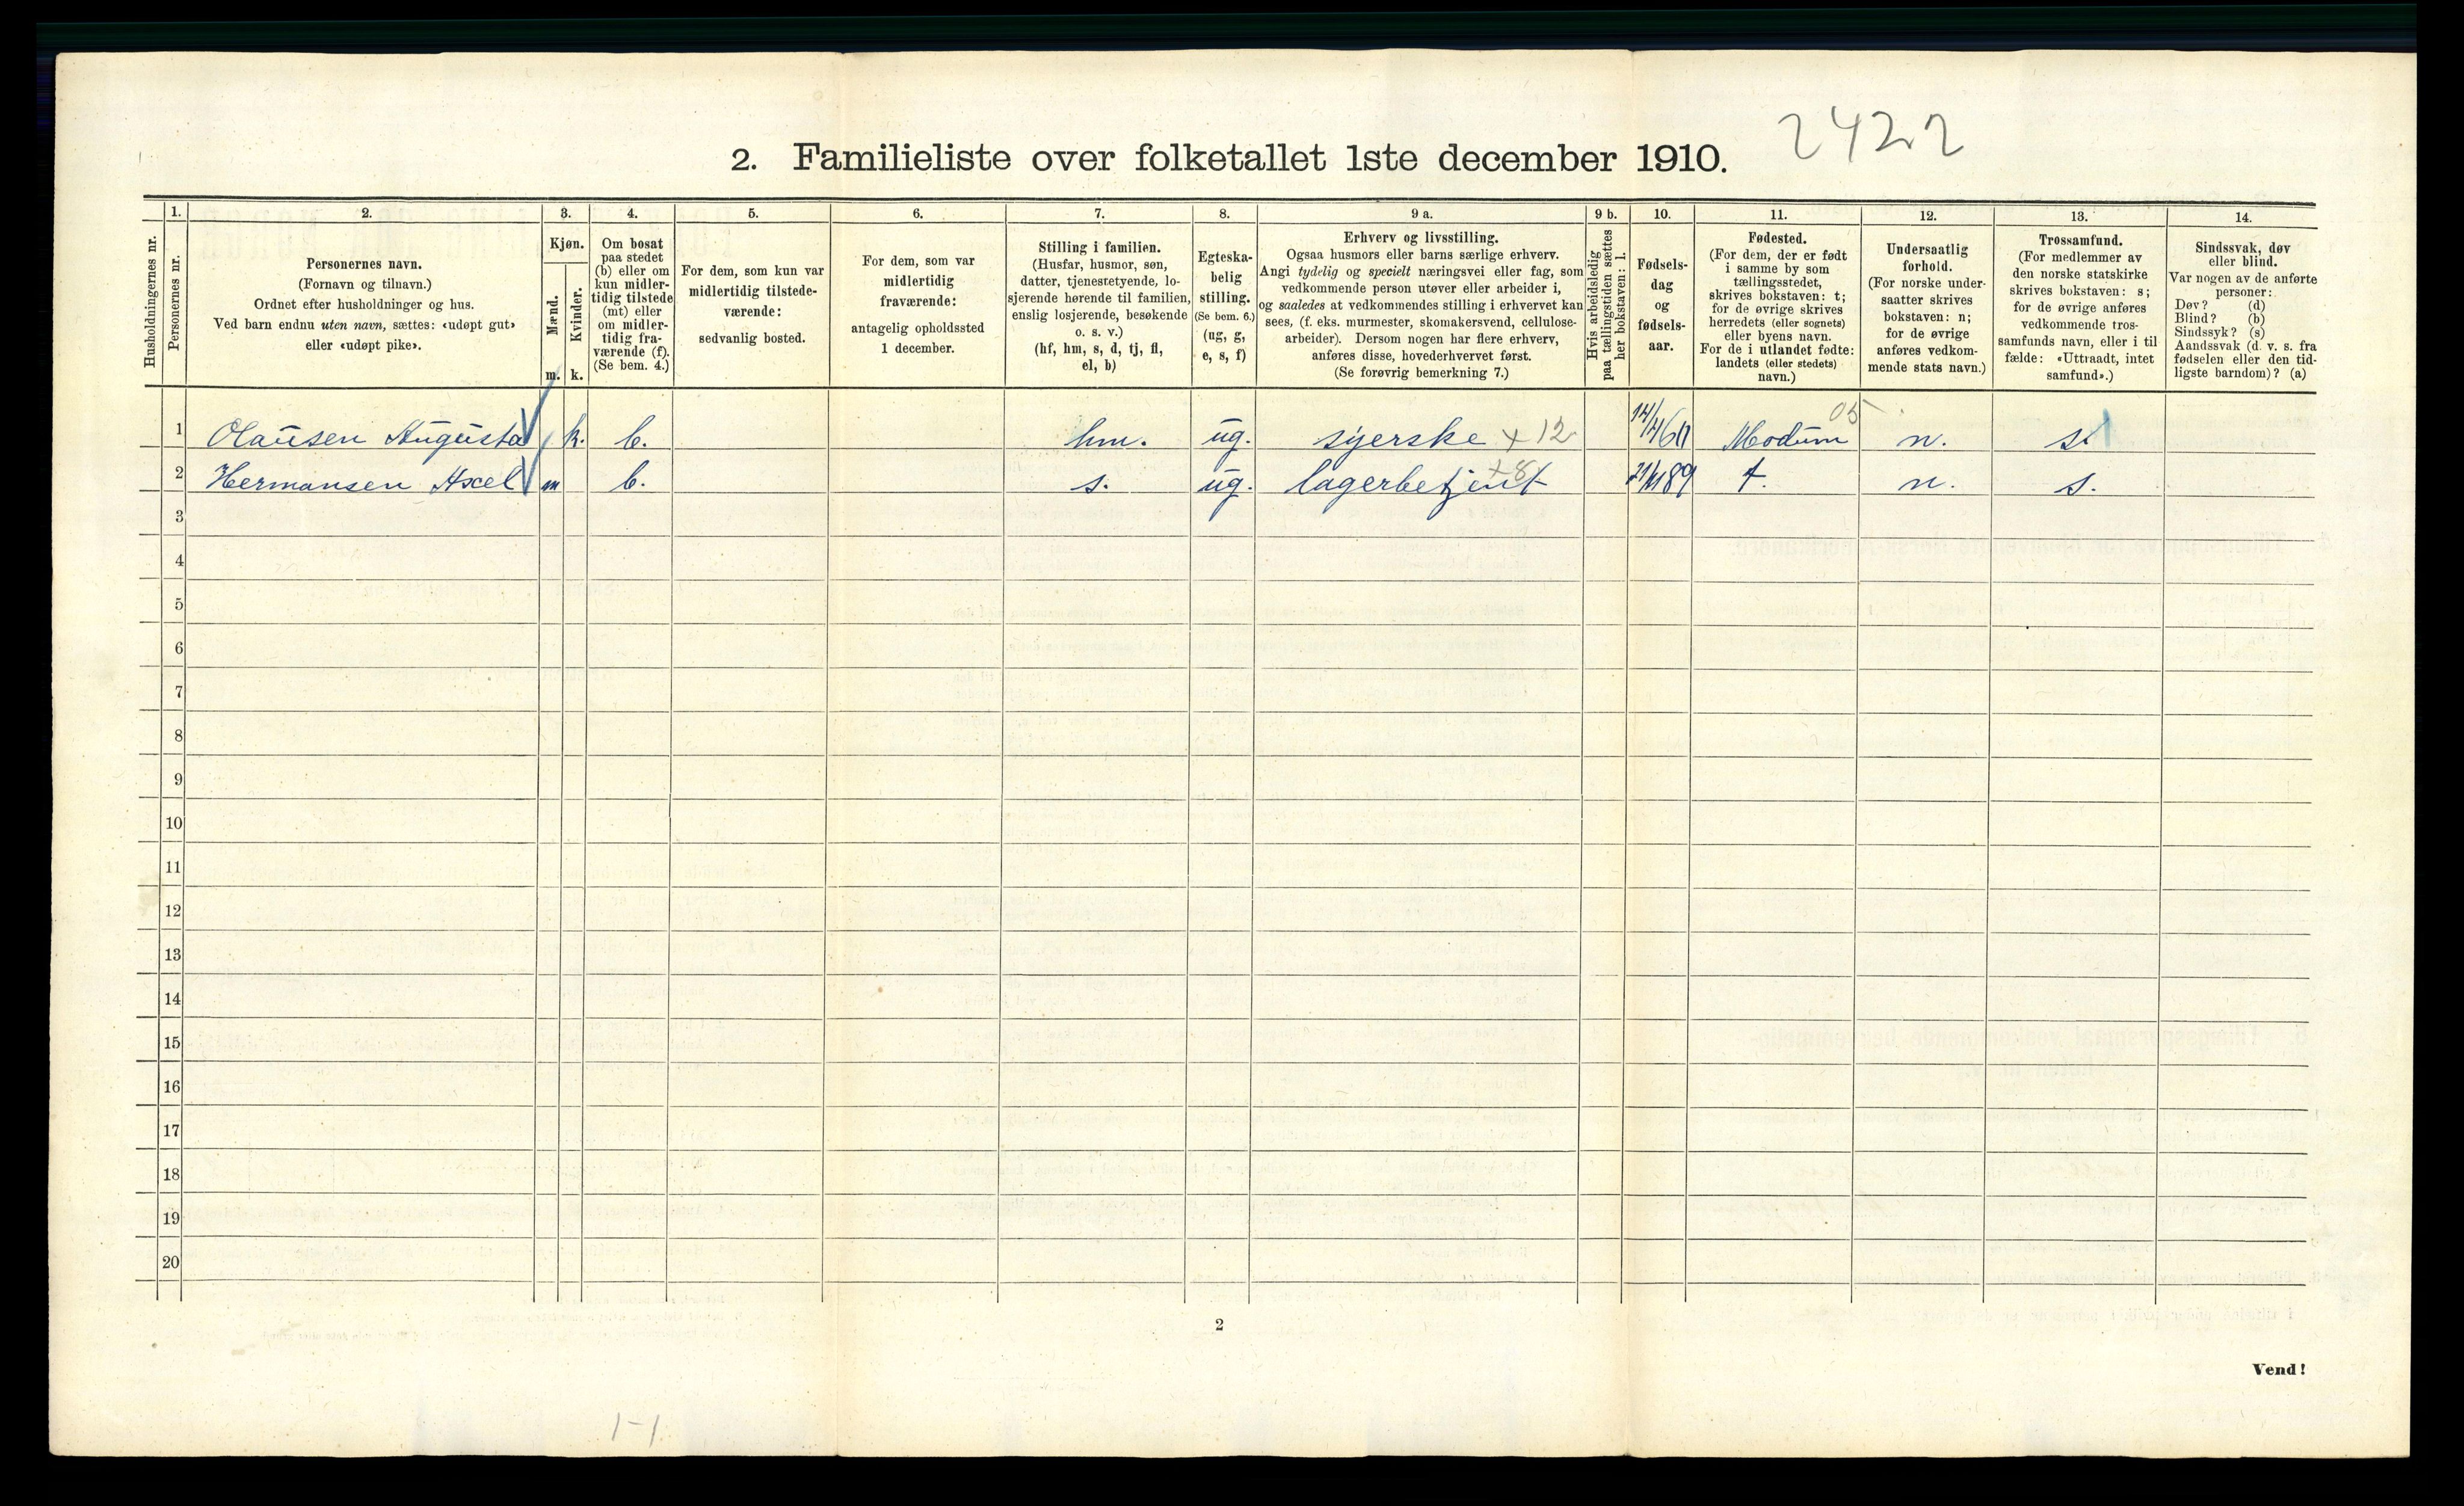 2422
2. Familieliste over folketallet 1ste december 1910.
Husholdningernes nr.
1.
Personernes nr.
2.
Personernes navn.
(Fornavn og tilnavn.)
Ordnet efter husholdninger og hus.
Ved barn endnu uten navn, sættes: «udøpt gut»
eller «udøpt pike».
3.
Kjøn.
Mænd.
Kvinder.
m. k.
4.
Om bosat
paa stedet
(b) eller om
kun midler-
tidig tilstede
(mt) eller
om midler-
tidig fra-
værende (f).
(Se bem. 4.)
5.
For dem, som kun var
midlertidig tilstede-
værende:
sedvanlig bosted.
6.
For dem, som var
midlertidig
fraværende:
antagelig opholdssted
1 december.
7.
Stilling i familien.
(Husfar, husmor, søn,
datter, tjenestetyende, lo-
sjerende hørende til familien,
enslig losjerende, besøkende
o. s. v.)
(hf, hm, s, d, tj, fl,
el, b)
8.
Egteska-
belig
stilling.
(Se bem. 6.)
(ug, g,
e, s, f)
9 a.
Erhverv og livsstilling.
Ogsaa husmors eller barns særlige erhverv.
Angi tydelig og specielt næringsvei eller fag, som
vedkommende person utøver eller arbeider i,
og saaledes at vedkommendes stilling i erhvervet kan
sees, (f. eks. murmester, skomakersvend, cellulose-
arbeider). Dersom nogen har flere erhverv,
anføres disse, hovederhvervet først.
(Se forøvrig bemerkning 7.)
9 b.
Hvis arbeidsledig
paa tællingstiden sættes
her bokstaven: l.
10.
Fødsels-
dag
og
fødsels-
aar.
11.
Fødested.
(For dem, der er født
i samme by som
tællingsstedet,
skrives bokstaven: t;
for de øvrige skrives
herredets (eller sognets)
eller byens navn.
For de i utlandet fødte:
landets (eller stedets)
navn.)
12.
Undersaatlig
forhold.
(For norske under-
saatter skrives
bokstaven: n;
for de øvrige
anføres vedkom-
mende stats navn.)
13.
Trossamfund.
(For medlemmer av
den norske statskirke
skrives bokstaven: s;
for de øvrige anføres
vedkommende tros-
samfunds navn, eller i til
fælde: «Uttraadt, intet
samfund».)
14.
Sindssvak, døv
eller blind.
Var nogen av de anførte
personer:
Døv? (d)
Blind? (b)
Sindssyk? (s)
Aandssvak (d. v. s. fra
fødselen eller den tid-
ligste barndom)? (a)
1 Olausen Augusta k. b. hm. ug. syerske + 12 Modum 05 n. s.
2 Hermansen Axel m b. s. ug. lagerbetjent +8 t. n. s.
3
4
5
6
7
8
9
10
11
12
13
14
15
16
17
18
19
20
2
Vend!
1-1